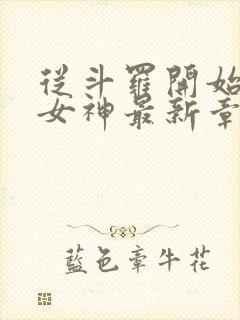 從斗羅開始
女神最新章
藍色牽牛花